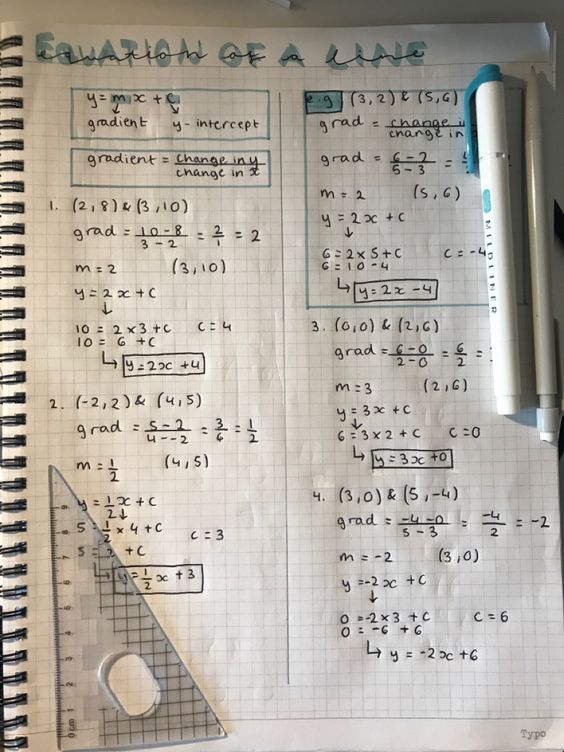 EQUATION OF A LINE
equation of a line
y = mx + c
gradient y-intercept
gradient = change in y
change in x
1. (2,8) & (3,10)
grad = 10-8 = 2 = 2
3-2 1
m = 2 (3,10)
y = 2x + c
10 = 2 x 3 + c c = 4
10 = 6 + c
y = 2x + 4
2. (-2,2) & (4,5)
grad = 5-2 = 3 = 1
4--2 6 2
m = 1/2 (4,5)
y = 1/2 x + c
5 = 1/2 x 4 + c c = 3
5 = 2 + c
y = 1/2 x + 3
e.g (3,2) & (5,6)
grad = change i
change in
grad = 6-2 =
5-3
m = 2 (5,6)
y = 2x + c
6 = 2 x 5 + c c = -4
6 = 10 - 4
y = 2x - 4
3. (0,0) & (2,6)
grad = 6-0 = 6 =
2-0 2
m = 3 (2,6)
y = 3x + c
6 = 3 x 2 + c c = 0
y = 3x + 0
4. (3,0) & (5,-4)
grad = -4-0 = -4 = -2
5-3 2
m = -2 (3,0)
y = -2x + c
0 = -2 x 3 + c c = 6
0 = -6 + 6
y = -2x + 6
MILDLINER
0 cm 1 2 3 4 5 6 7 8 9
Typo